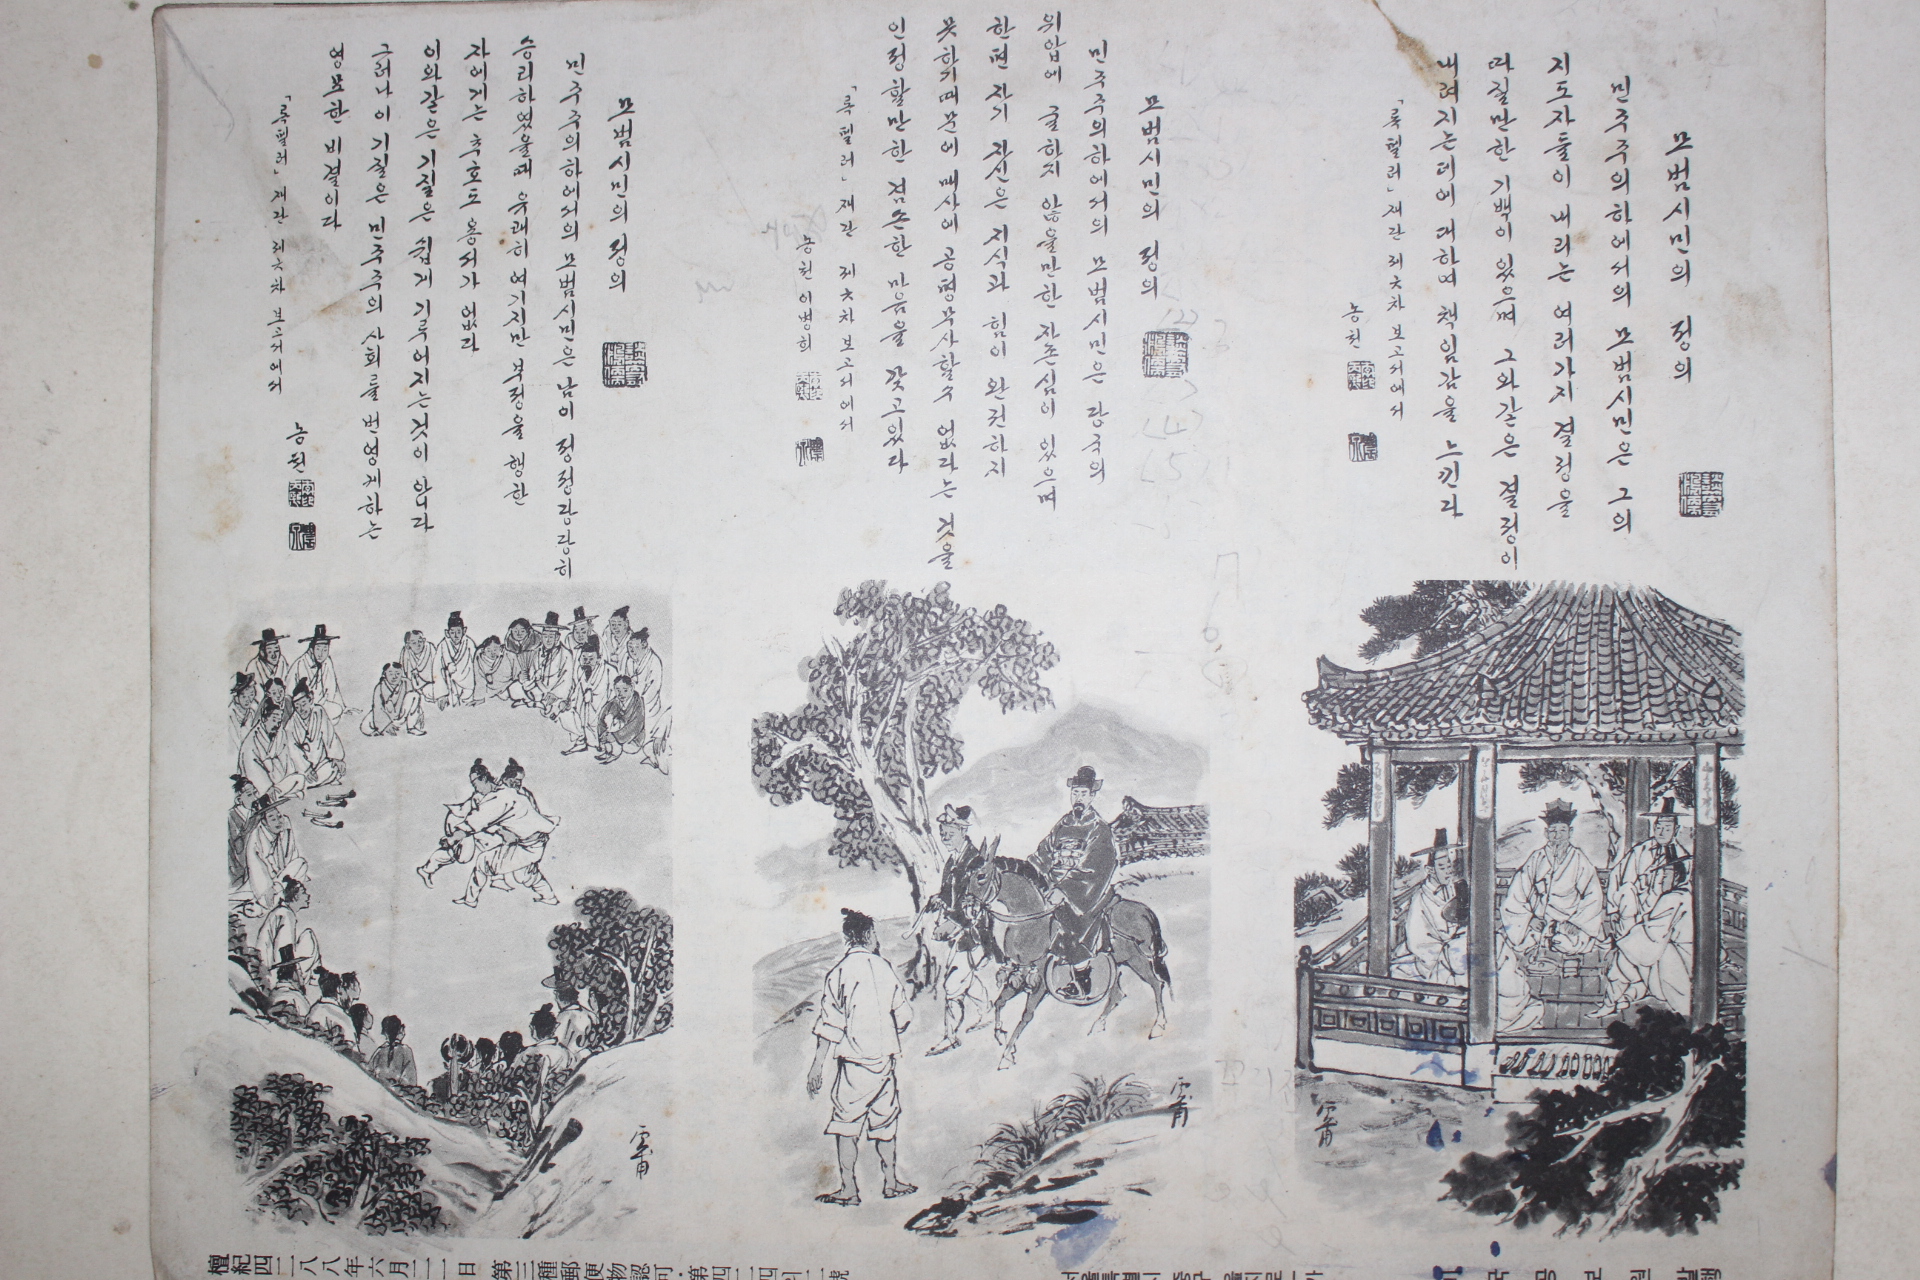 모범시민의 정의
민주주의하에서의 모범시민은 그의
지도자들이 내리는 여러가지 결정을
따질만한 기백이 있으며 그와같은 결정이
내려지는데에 대하여 책임감을 느낀다
「록펠러」재단 제六차 보고서에서
농천
모범시민의 정의
민주주의하에서의 모범시민은 당국의
위압에 굴하지 않을만한 자존심이 있으며
한편 자기 자신은 지식과 힘이 완전하지
못하기때문에 매사에 공평무사할수 없다는 것을
인정할만한 겸손한 마음을 갖고있다
「록펠러」재단 제六차 보고서에서
농천 이병희
모범시민의 정의
민주주의하에서의 모범시민은 남이 정정당당히
승리하였을때 유쾌히 여기지만 부정을 행한
자에게는 추호도 용서가 없다
이와같은 기질은 쉽게 기루어지는것이 아니다
그러나 이 기질은 민주주의 사회를 번영케하는
영묘한 비결이다
「록펠러」재단 제六차 보고서에서
농천
檀紀四二八八年六月二一日 第三種郵便物認可·第四二四의二號